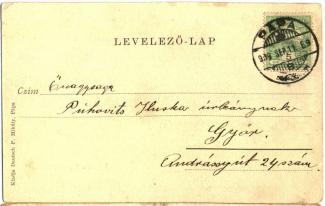 PÁPA
LEVELEZŐ-LAP
Czim Őnagysága
Pühovits Iluska úrleánynak
Győr.
Andrássy út 24 szám.
Kiadja Deutsch F. Mihály, Pápa